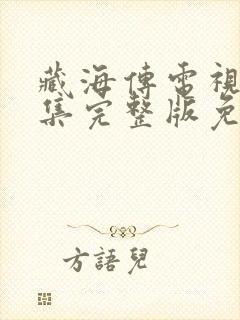 藏海傳電視
集完整版免
方語兒